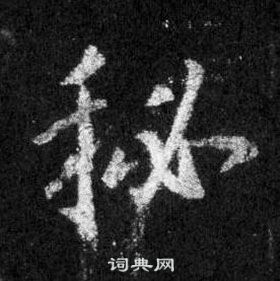 秘
词典网